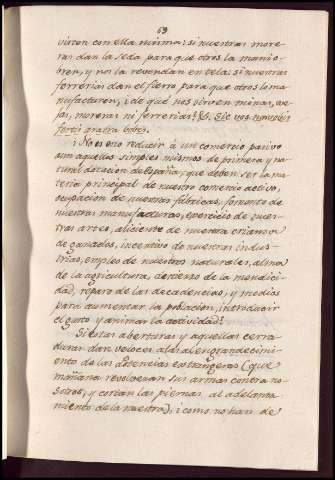 69
virtan con ella misma: si nuestras more-
ras dan la seda para que otros la manio-
bren, y nos la revendan en telas si nuestras
ferrerias dan el fierro para que otros lo ma-
nufacturen, ¿de qué nos sirven minas, ove-
jas, moreras ni ferrerias? Sic vos non vobis
fertis aratra boves.
¿No es eso reducir á un comercio pasivo
aun aquellos simples mismos de primera y na-
tural dotacion de España, que deben ser la ma-
teria principal de nuestro comercio activo,
ocupacion de nuestras fábricas, fomento de
nuestras manufacturas, exercicio de nues-
tras artes, aliciente de nuestra crianza
de ganados, incentivo de nuestras Indus-
trias, empleo de nuestros naturales, alma
de la agricultura, destierro de la mendici-
dad, reparo de las decadencias, y medios
para aumentar la poblacion, introducir
el gusto y animar la actividad?
Si estas aberturas y aquellas cerra-
duras dan veloces alas al engrandecimi-
ento de las potencias extrangeras (que
mañana revolveran sus armas contra no-
sotros, y cortan las piernas al adelanta-
miento de la nuestra), ¿como no han de